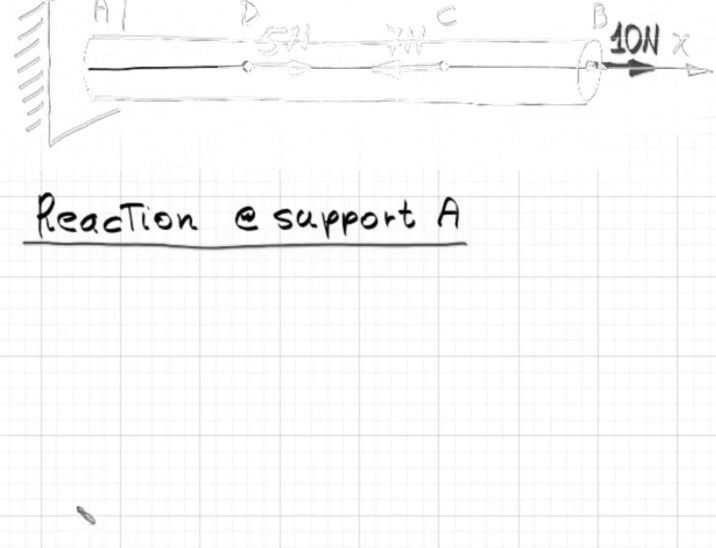 A D C B
5N 7N 10N x
Reaction @ support A